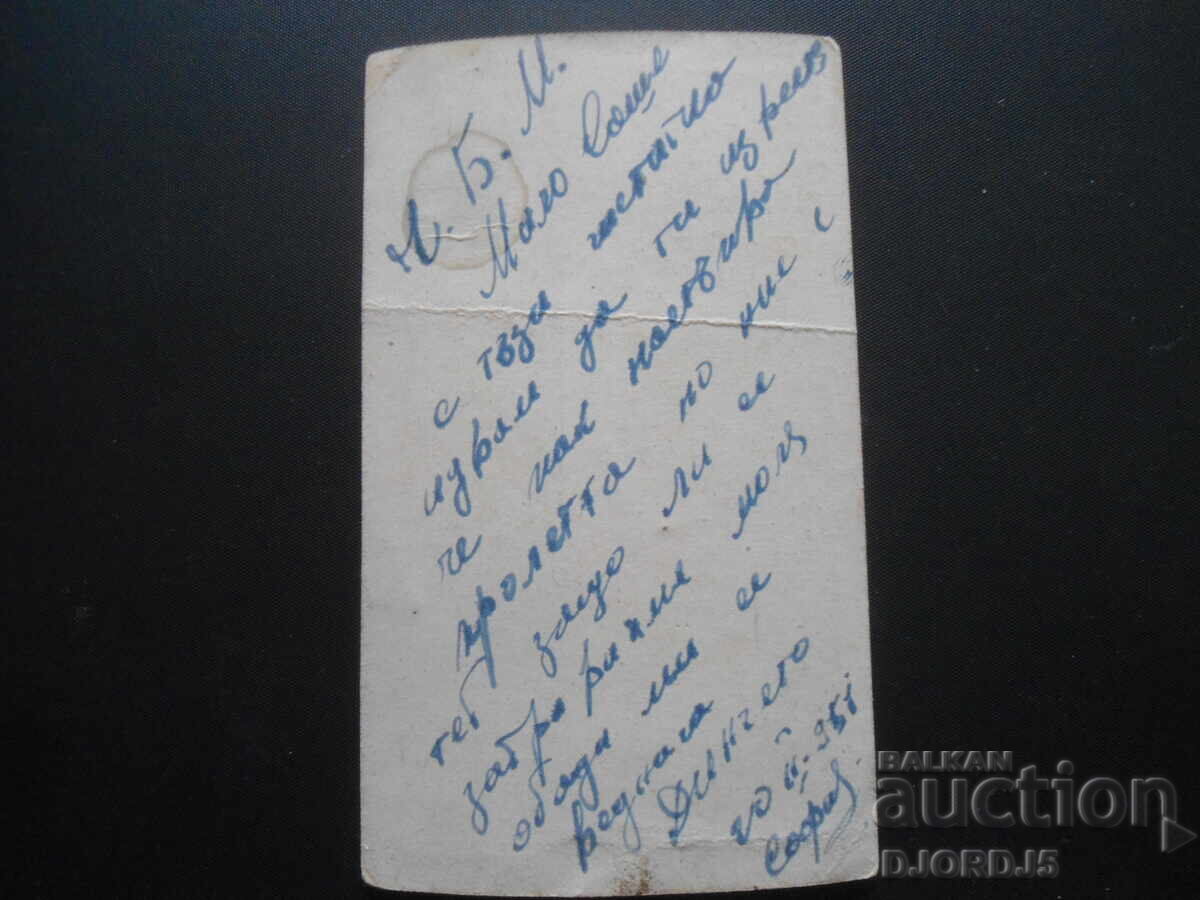 Ч. Б. М.
Мало Саше
с тъзи шетатио
мурам да ти изрека
че пак настъпи
пролетта но ние с
теб защо ли се
забрарихме моля
обади ми се
веднага
Динчето
20 II. 951
София.
BALKAN
auction
DJORDJ5